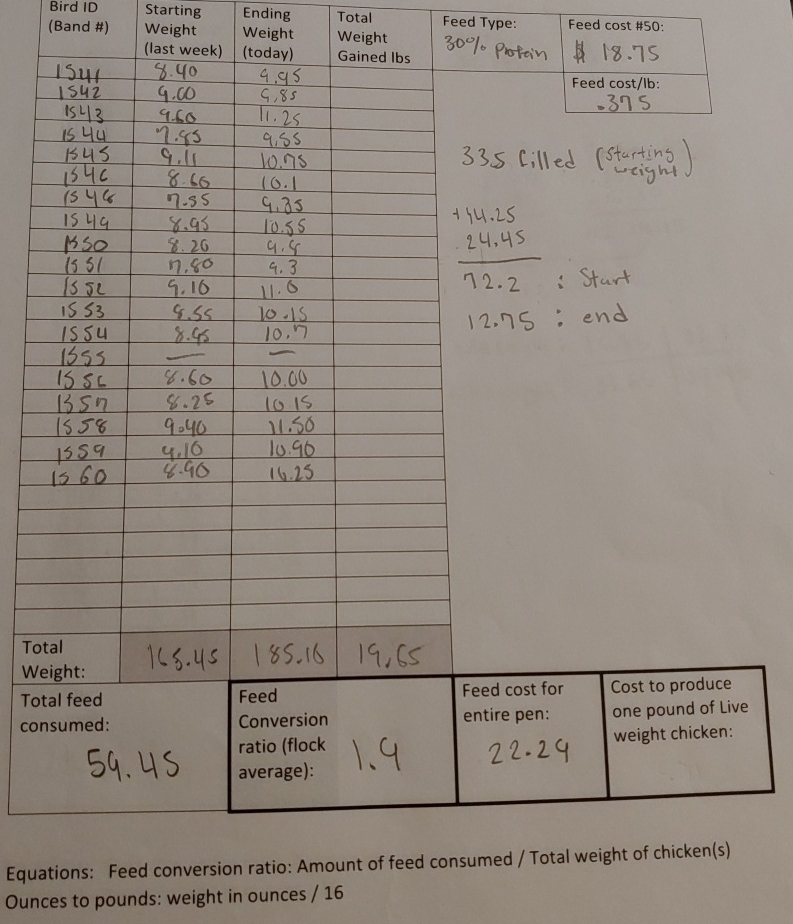 Bird ID (Band #) Starting Weight (last week) Ending Weight (today) Total Weight Gained lbs
Feed Type: 30% Protein
Feed cost #50: $ 18.75
Feed cost/lb: .375
1541 8.40 9.95
1542 9.00 9.85
1543 9.60 11.25
1544 7.85 9.55
1545 9.11 10.75
1546 8.60 10.1
1548 7.55 9.35
1549 8.95 10.55
1550 8.20 9.8
1551 7.80 9.3
1552 9.10 11.0
1553 8.55 10.15
1554 8.95 10.7
1555 — —
1556 8.60 10.00
1557 8.25 10.15
1558 9.40 11.50
1559 9.10 10.90
1560 8.90
33.5 filled (starting weight)
+14.25
24.45
72.2 : Start
12.75 : end
Total Weight: 165.45 185.10 19.65
Total feed consumed: 59.45
Feed Conversion ratio (flock average): 1.9
Feed cost for entire pen: 22.29
Cost to produce one pound of Live weight chicken:
Equations: Feed conversion ratio: Amount of feed consumed / Total weight of chicken(s)
Ounces to pounds: weight in ounces / 16